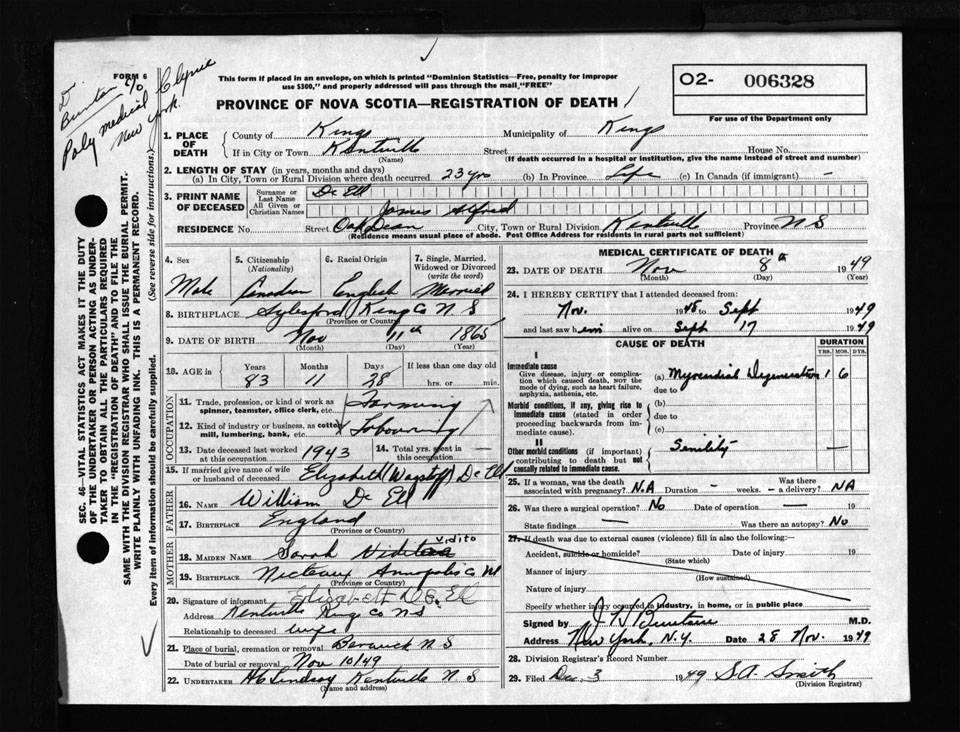 Dr
Bunstein c/o
Poly medical Clynic
New York.
FORM 6
This form if placed in an envelope, on which is printed "Dominion Statistics—Free, penalty for improper
use $300," and properly addressed will pass through the mail "FREE"
O2- 006328
For use of the Department only
PROVINCE OF NOVA SCOTIA—REGISTRATION OF DEATH
1. PLACE OF DEATH
County of Kings Municipality of Kings
If in City or Town Kentville Street House No.
(Name) (If death occurred in a hospital or institution, give the name instead of street and number)
2. LENGTH OF STAY (in years, months and days)
(a) In City, Town or Rural Division where death occurred 23 yrs (b) In Province Life (c) In Canada (if immigrant) -
3. PRINT NAME OF DECEASED
Surname or Last Name De Ell
All Given or Christian Names James Alfred
RESIDENCE No. Street Oak Dean City, Town or Rural Division Kentville Province N S
(Residence means usual place of abode. Post Office Address for residents in rural parts not sufficient)
4. Sex 5. Citizenship (Nationality) 6. Racial Origin 7. Single, Married, Widowed or Divorced (write the word)
Male Canadian English Married
8. BIRTHPLACE Aylesford Kings Co N S
(Province or Country)
9. DATE OF BIRTH Nov 11th 1865
(Month) (Day) (Year)
10. AGE in Years Months Days If less than one day old
83 11 28 hrs. or min.
OCCUPATION
11. Trade, profession, or kind of work as spinner, teamster, office clerk, etc. Farming
12. Kind of industry or business, as cotton mill, lumbering, bank, etc. Labouring
13. Date deceased last worked at this occupation 1943 14. Total yrs. spent in this occupation —
15. If married give name of wife or husband of deceased Elizabeth (Wagstaff) De Ell
FATHER
16. NAME William De Ell
17. BIRTHPLACE England
(Province or Country)
MOTHER
Vidito
18. MAIDEN NAME Sarah
19. BIRTHPLACE Nictaux Annapolis Co NS
(Province or Country)
20. Signature of informant Elizabett De. El
Address Kentville Kings Co. N S.
Relationship to deceased wife
21. Place of burial, cremation or removal Berwick N S
Date of burial or removal Nov 10/49
22. UNDERTAKER H C Lindsay Kentville N S
(Name and address)
MEDICAL CERTIFICATE OF DEATH
23. DATE OF DEATH Nov 8th 1949
(Month) (Day)
24. I HEREBY CERTIFY that I attended deceased from:
Nov. 1948 to Sept 1949
and last saw him alive on Sept 17 1949
CAUSE OF DEATH DURATION
YRS. MOS. DYS.
I
Immediate cause
Give disease, injury or complication which caused death, NOT the mode of dying, such as heart failure, asphyxia, asthenia, etc.
(a) Myocardial Degeneration 1 6
due to
Morbid conditions, if any, giving rise to immediate cause (stated in order proceeding backwards from immediate cause).
(b)
due to
(c)
II
Other morbid conditions (if important) contributing to death but not causally related to immediate cause.
Senility —
25. If a woman, was the death associated with pregnancy? N.A Duration — weeks. Was there a delivery? NA
26. Was there a surgical operation? No Date of operation — 19
State findings — Was there an autopsy? No
27. If death was due to external causes (violence) fill in also the following:
Accident, suicide or homicide? Date of injury 19
(State which)
Manner of injury
(How sustained)
Nature of injury
Specify whether injury occurred in industry, in home, or in public place
Signed by M.D.
Address New York, N.Y. Date 28 Nov. 1949
28. Division Registrar's Record Number
29. Filed Dec. 3 1949 S A. Smith
(Division Registrar)
SEC. 46—VITAL STATISTICS ACT MAKES IT THE DUTY
OF THE UNDERTAKER OR PERSON ACTING AS UNDER-
TAKER TO OBTAIN ALL THE PARTICULARS REQUIRED
IN THE "REGISTRATION OF DEATH" AND TO FILE THE
SAME WITH THE DIVISION REGISTRAR WHO SHALL ISSUE THE BURIAL PERMIT.
WRITE PLAINLY WITH UNFADING INK. THIS IS A PERMANENT RECORD.
Every item of information should be carefully supplied. (See reverse side for instructions.)